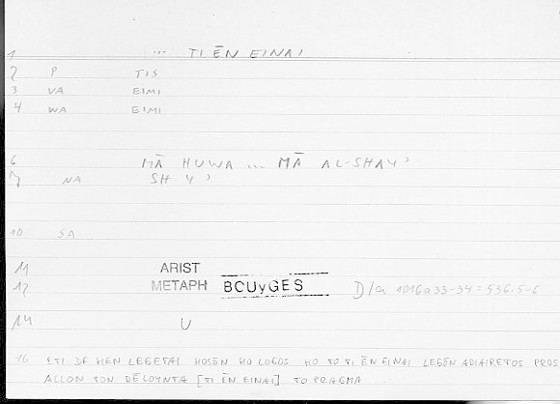 1 ... TI ĒN EINAI
2 P TIS
3 VA EIMI
4 WA EIMI
6 MĀ HUWA ... MĀ AL-SHAYʾ
7 NA SH Y ʾ
10 SA
11 ARIST
12 METAPH BOUyGES D/a 1016a33-34 = 536.5-6
14 U
16 ETI DE HEN LEGETAI HOSŌN HO LOGOS HO TO TI ĒN EINAI LEGŌN ADIAIRETOS PROS
ALLON TON DĒLOYNTA [TI ĒN EINAI] TO PRAGMA